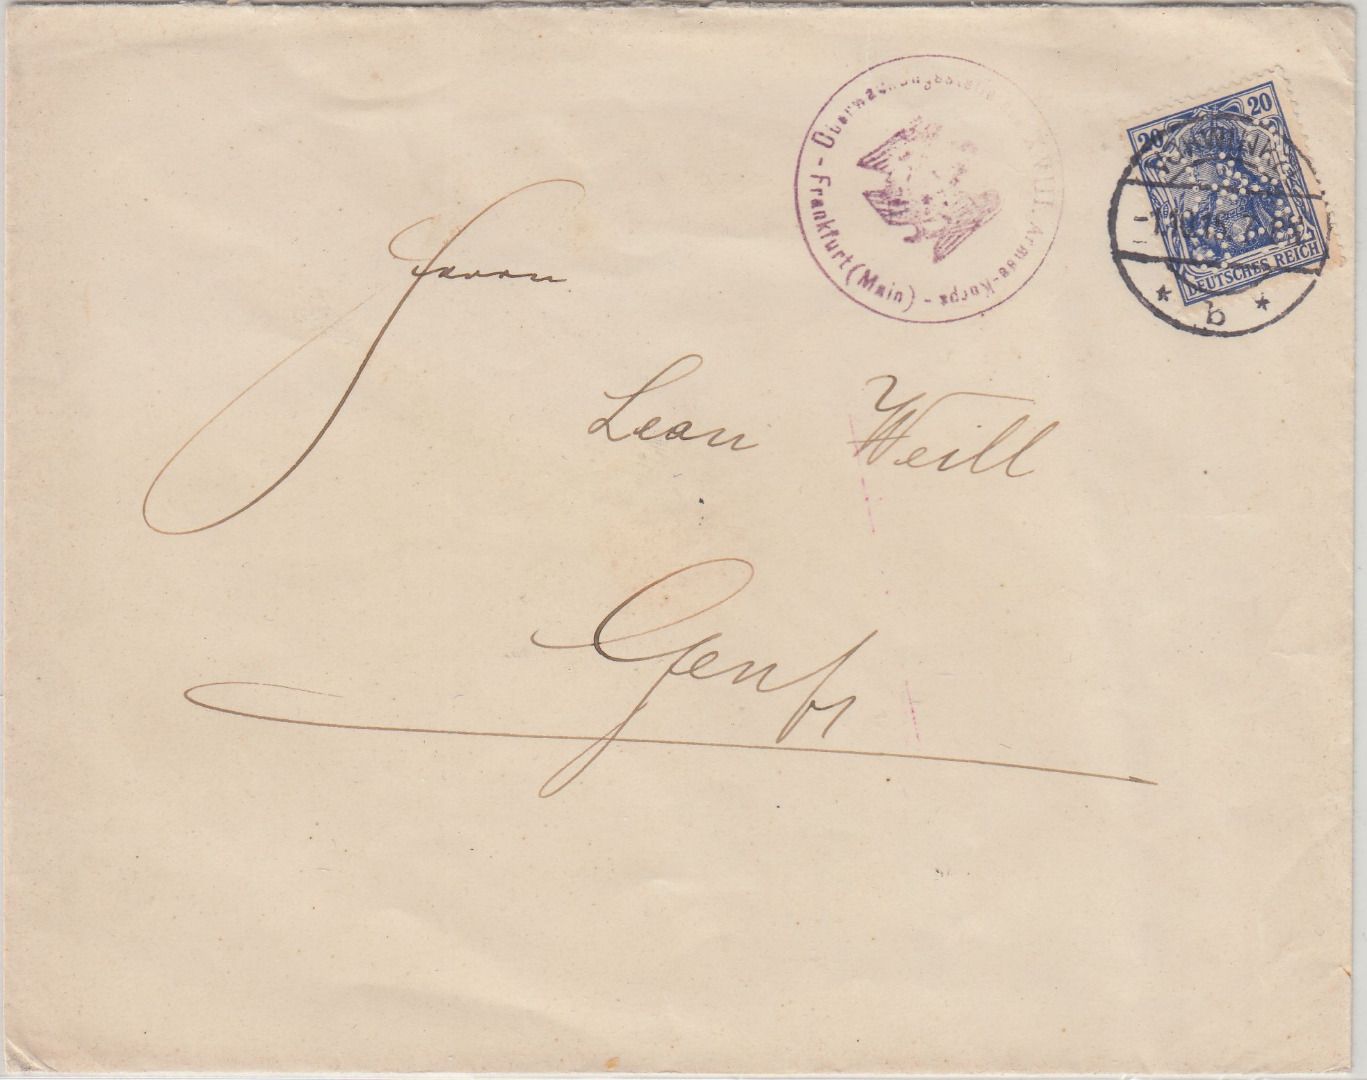 Überwachungsstelle XVIII. Armee-Korps - Frankfurt (Main) -
20 20
DEUTSCHES REICH
* b *
Herrn
Leon Weill
Genf